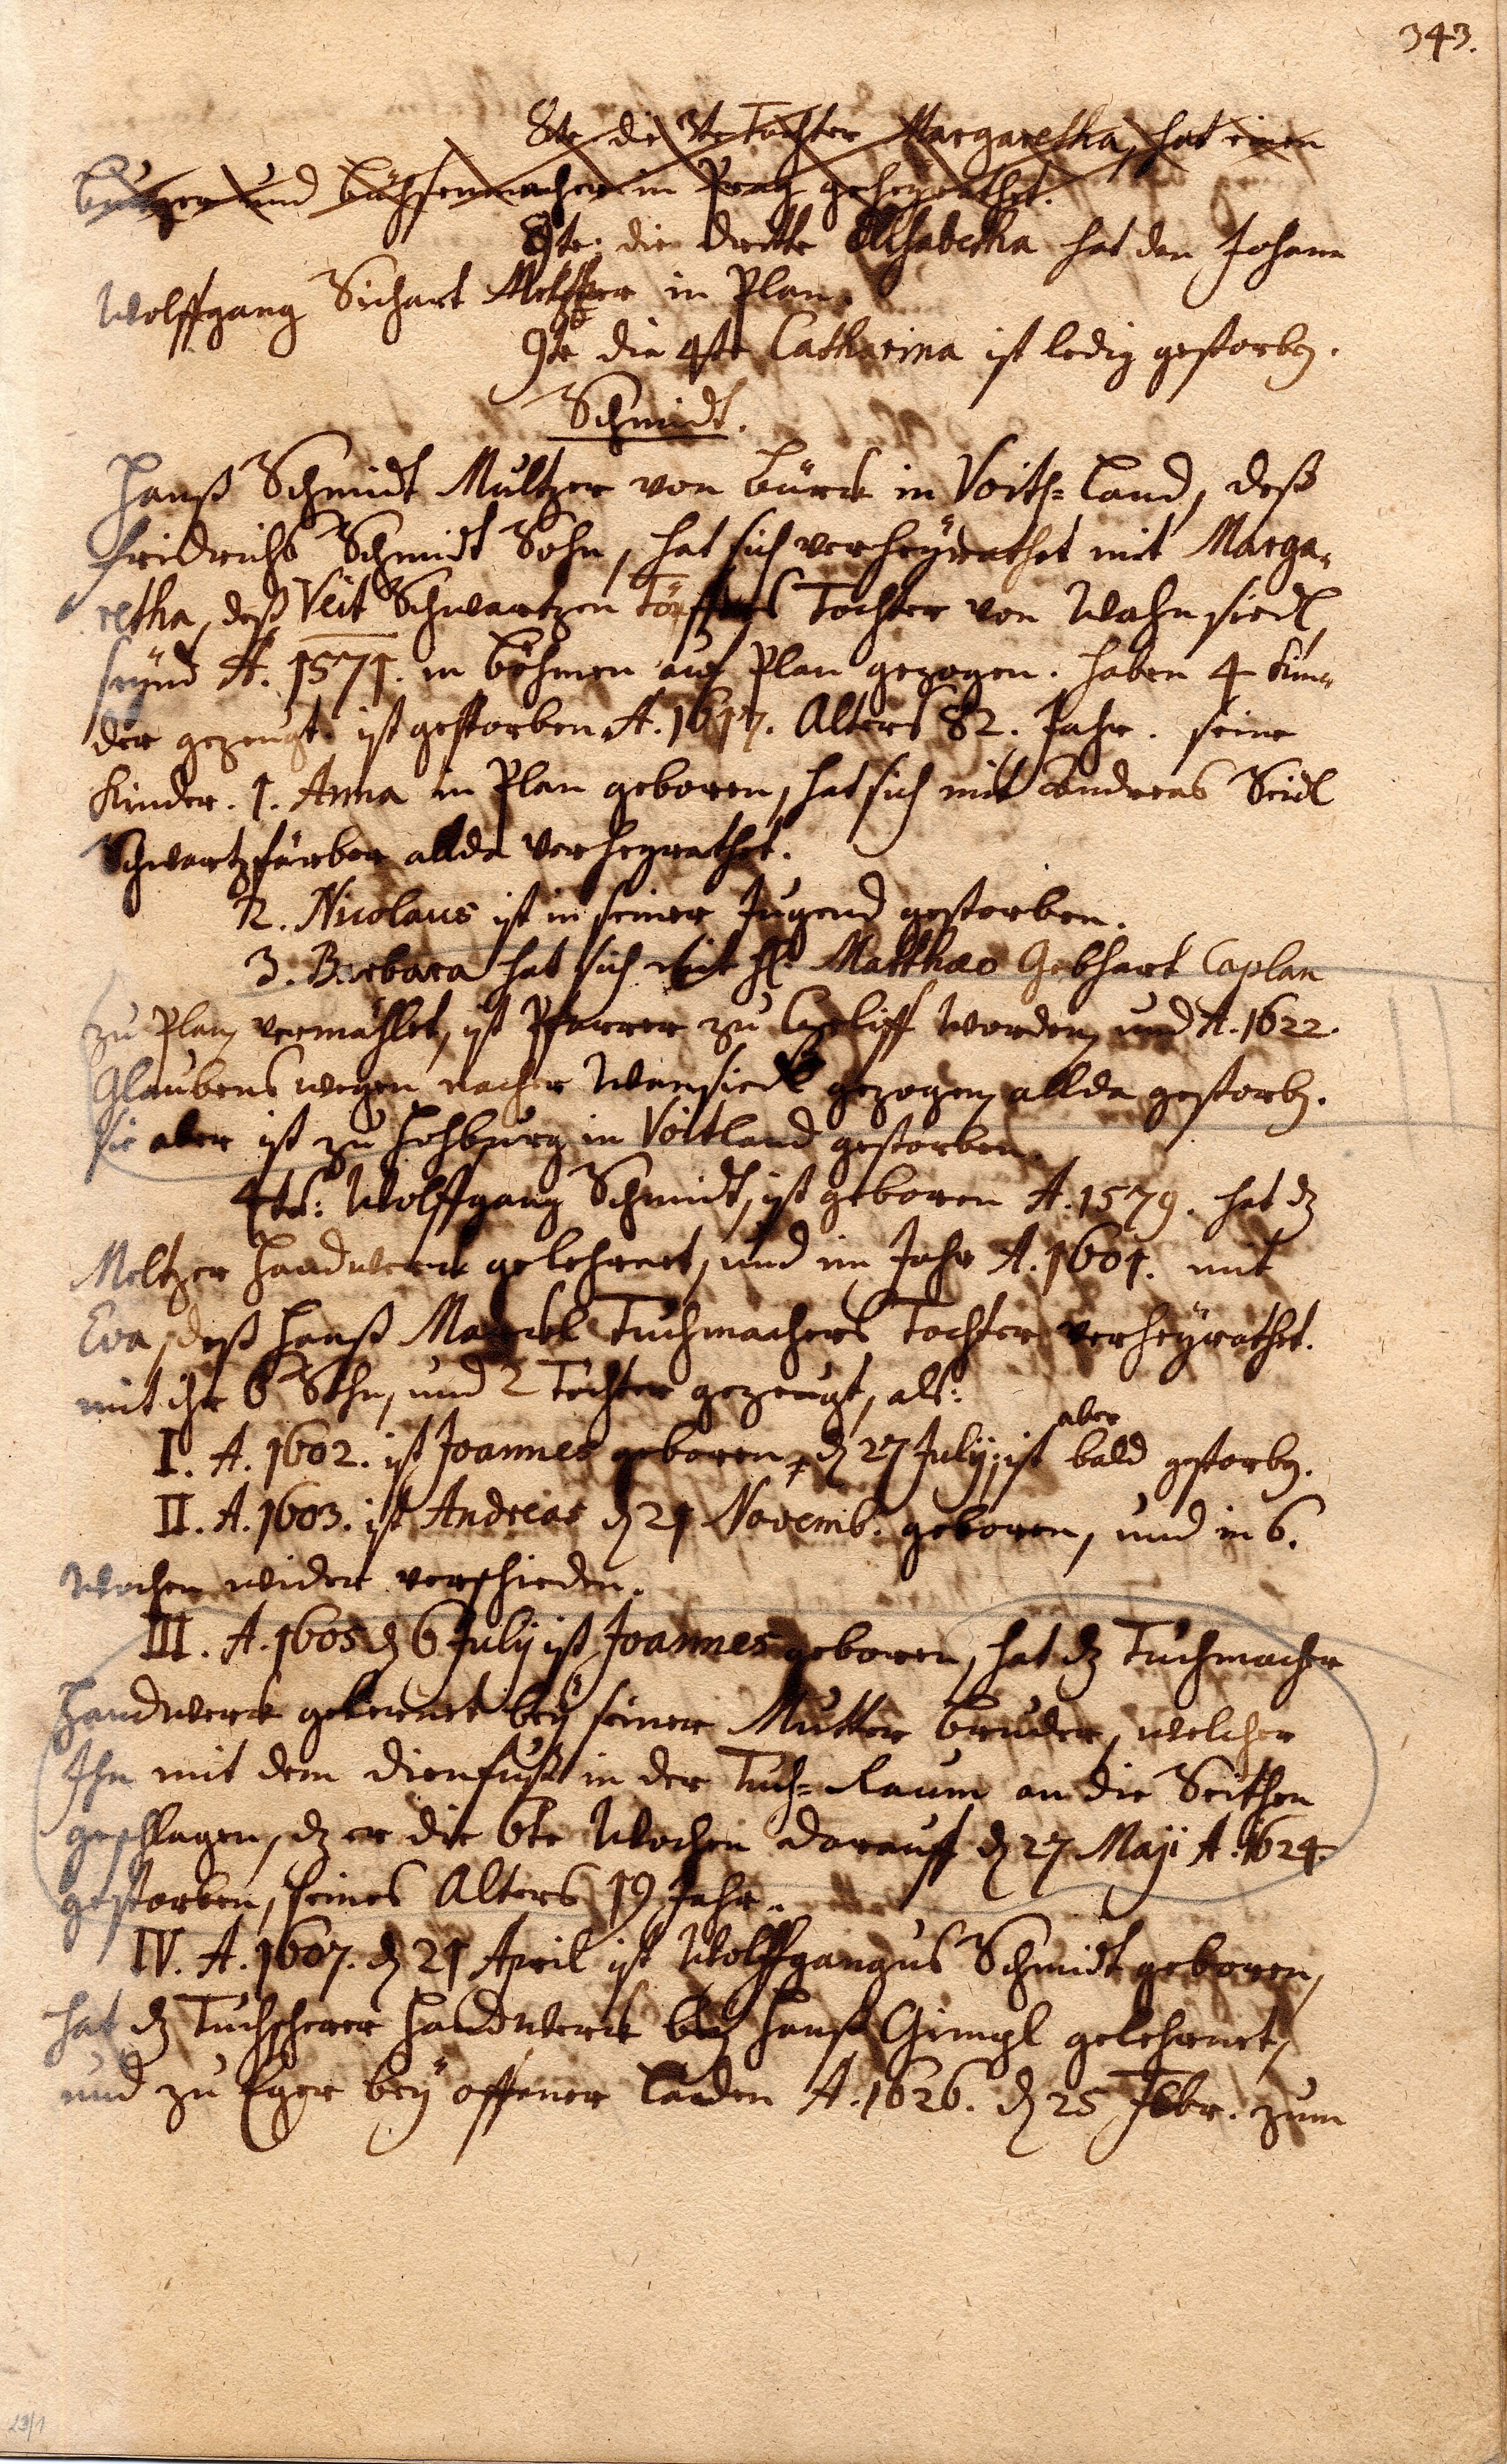 343.
8te die 3te Tochter Margaretha, hat einen
und büchsenmacher in Prag geheyrathet.
8te. die dritte Elisabetha hat den Johann
Wolffgang Sichart Meltzer in Plan.
9te die 4te Catharina ist ledig gestorbn.
Schmidt.
Hanß Schmidt Multzer von bürck in Voith= Land, deß
fridrichs Schmidt Sohn, hat sich verheÿrathet mit Marga=
retha, deß Veit Schwartzen Töpffers Tochter von Wahnsiedl,
seynd A. 1571. in böhmen auf Plan gezogen. haben 4 Kin=
der gezeugt. ist gestorben A. 1617. Alters 82. Jahr. seine
Kinder. 1. Anna in Plan geboren, hat sich mit Andreas Seidl
Schwartzfärber allda verheyrathet.
2. Nicolaus ist in seiner Jugend gestorben.
3. Barbara hat sich mit H. Matthæo Gebhart Caplan
zu Plan vermählet, ist Pfarrer zu worden, und A. 1622.
Glaubens wegen nacher Wunsiedl gezogen, allda gestorbn.
sie aber ist zu Hohburg in Voitland gestorben.
4te: Wolffgang Schmidt, ist geboren A. 1579. hat dz
Meltzer Handwerck gelehrnet, und im Jahr A. 1601. mit
Eva, deß Hanß Marckl Tuchmachers Tochter verheÿrathet.
mit ihr 6 Söhn, und 2 Töchter gezeugt, als:
I. A. 1602. ist Joannes geboren, d 27 Julij, ist aber bald gestorbn.
II. A. 1603. ist Andreas d 21 Novemb. geboren, und in 6.
Wochen wider verschieden.
III. A. 1605 d 6 Julij ist Joannes geboren, hat dz Tuchmacher
Handwerck gelernet beÿ seiner Mutter bruder, welcher
Ihn mit dem in der Tuch= Raum an die Seithen
geschlagen, dz er die 6te Wochen darauff d 27 Maji A. 1624
gestorben, seines Alters 19 Jahr.
IV. A. 1607. d 21 April ist Wolffgangus Schmidt geboren,
hat dz Tuchscherer Handwerck beÿ Hanß Gimpl gelehrnet,
und zu Eger beÿ offener Laden A. 1626. d 25 Febr. zum